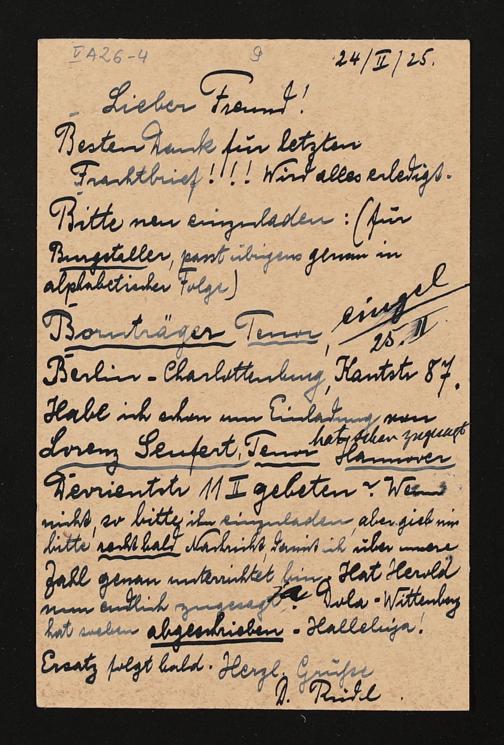 V A26-4 9 24/II/25.
Lieber Freund!
Besten Dank für letzten
Frachtbrief!!! Wird alles erledigt.
Bitte neu einzuladen: (für
Burgstaller, passt übrigens genau in
alphabetischer Folge)
Bornträger Tenor,
eingel
25. II
Berlin-Charlottenburg, Kantstr 87.
Habe ich schon um Einladung von
Lorenz Seufert, Tenor
hat schon zugesagt
Hannover
Devrientstr 11 II gebeten? Wenn
nicht, so bitte, ihn einzuladen, aber gieb mir
bitte recht bald Nachricht, damit ich über unsere
Zahl genau unterrichtet bin. Hat Herold
nun endlich zugesagt? Ja Dola-Wittenberg
hat soeben abgeschrieben - Halleluja!
Ersatz folgt bald. Herzl. Grüße
D. Rüdel.